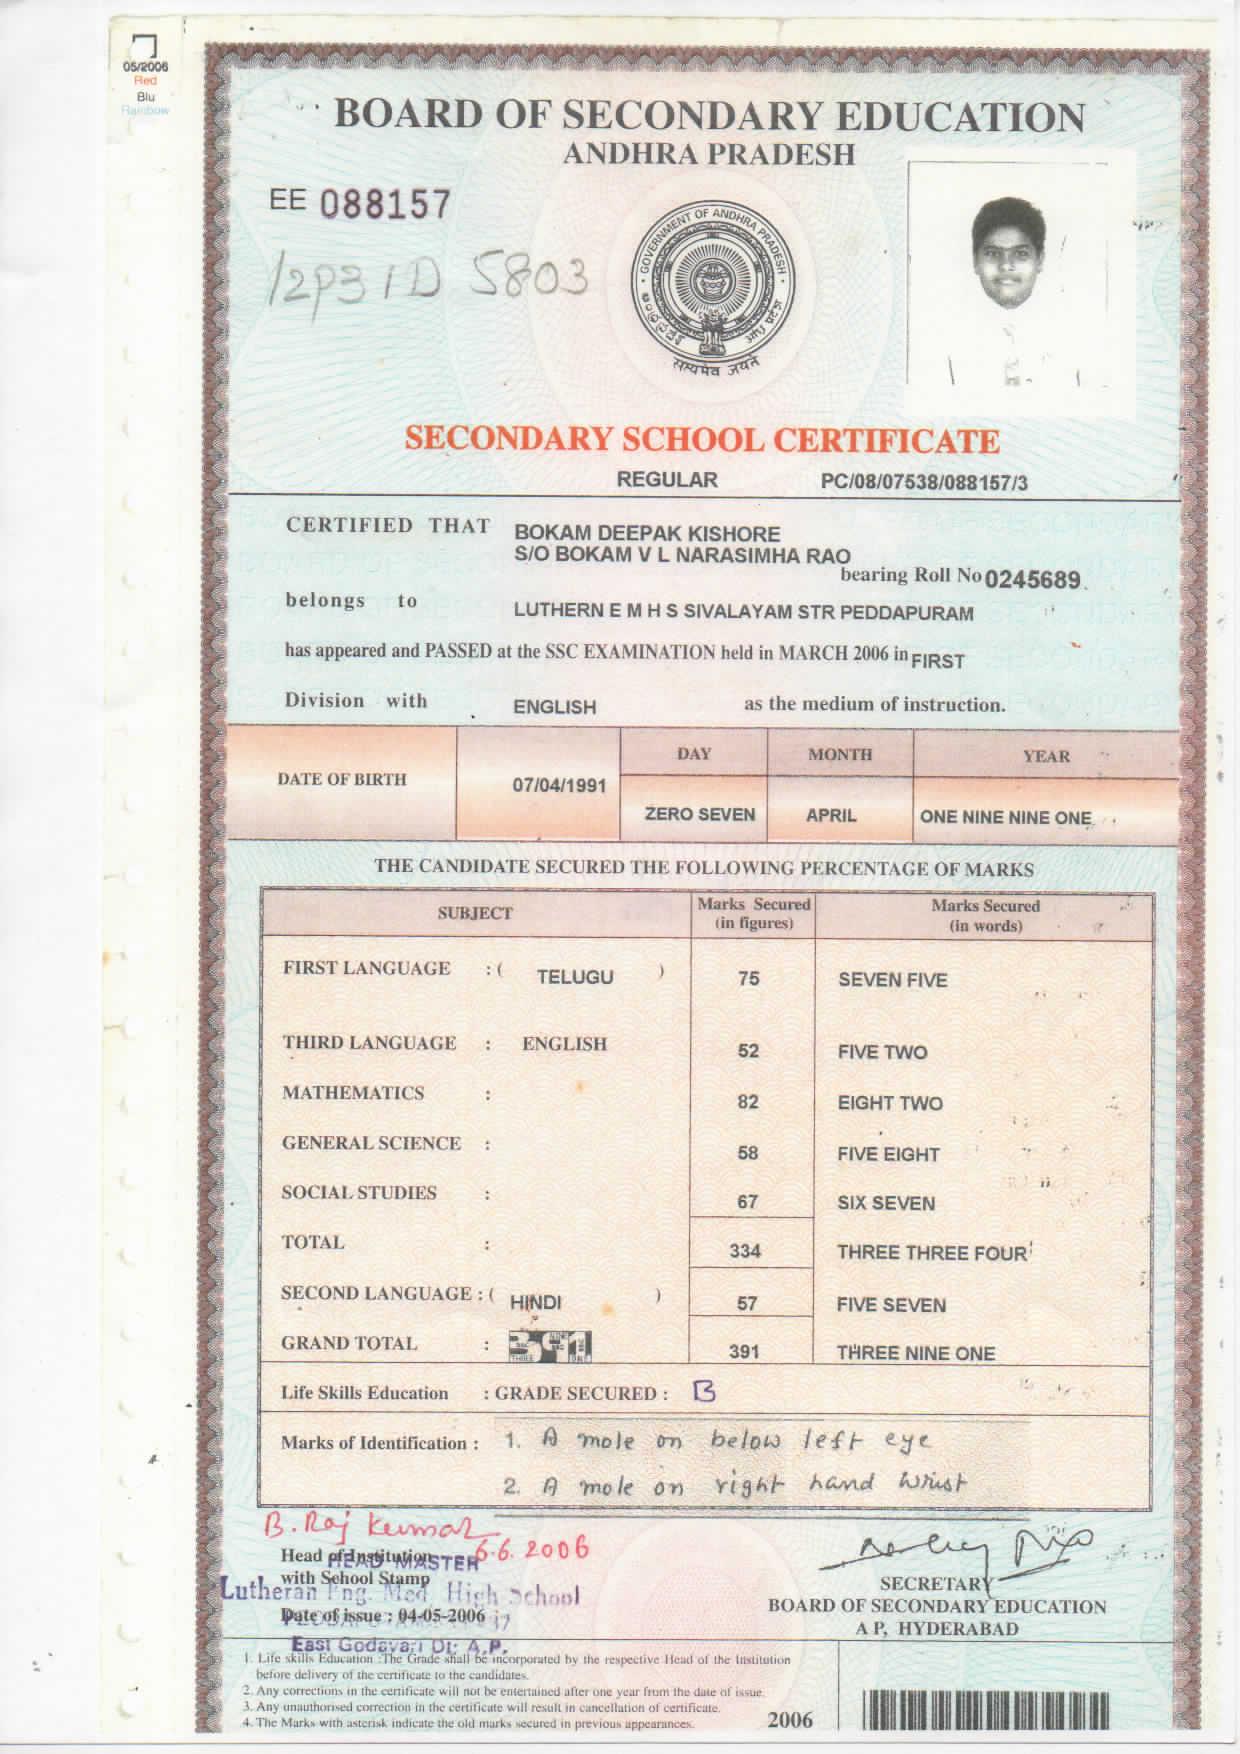 05/2006
Red
Blu
Rainbow
BOARD OF SECONDARY EDUCATION
ANDHRA PRADESH
EE 088157
12P31D 5803
GOVERNMENT OF ANDHRA PRADESH
सत्यमेव जयते
SECONDARY SCHOOL CERTIFICATE
REGULAR PC/08/07538/088157/3
CERTIFIED THAT BOKAM DEEPAK KISHORE
S/O BOKAM V L NARASIMHA RAO
bearing Roll No 0245689
belongs to LUTHERN E M H S SIVALAYAM STR PEDDAPURAM
has appeared and PASSED at the SSC EXAMINATION held in MARCH 2006 in FIRST
Division with ENGLISH as the medium of instruction.
DATE OF BIRTH 07/04/1991 DAY MONTH YEAR
ZERO SEVEN APRIL ONE NINE NINE ONE
THE CANDIDATE SECURED THE FOLLOWING PERCENTAGE OF MARKS
SUBJECT Marks Secured (in figures) Marks Secured (in words)
FIRST LANGUAGE : ( TELUGU ) 75 SEVEN FIVE
THIRD LANGUAGE : ENGLISH 52 FIVE TWO
MATHEMATICS : 82 EIGHT TWO
GENERAL SCIENCE : 58 FIVE EIGHT
SOCIAL STUDIES : 67 SIX SEVEN
TOTAL : 334 THREE THREE FOUR
SECOND LANGUAGE : ( HINDI ) 57 FIVE SEVEN
GRAND TOTAL : 391 391 THREE NINE ONE
Life Skills Education : GRADE SECURED : B
Marks of Identification : 1. A mole on below left eye
2. A mole on right hand wrist
B. Raj Kumar
6.6.2006
Head of Institution
HEAD MASTER
with School Stamp
Lutheran Eng. Med. High School
Date of issue : 04-05-2006
East Godavari Dt: A.P.
SECRETARY
BOARD OF SECONDARY EDUCATION
A P, HYDERABAD
1. Life skills Education :The Grade shall be incorporated by the respective Head of the Institution
before delivery of the certificate to the candidates.
2. Any corrections in the certificate will not be entertained after one year from the date of issue.
3. Any unauthorised correction in the certificate will result in cancellation of certificate.
4. The Marks with asterisk indicate the old marks secured in previous appearances.
2006